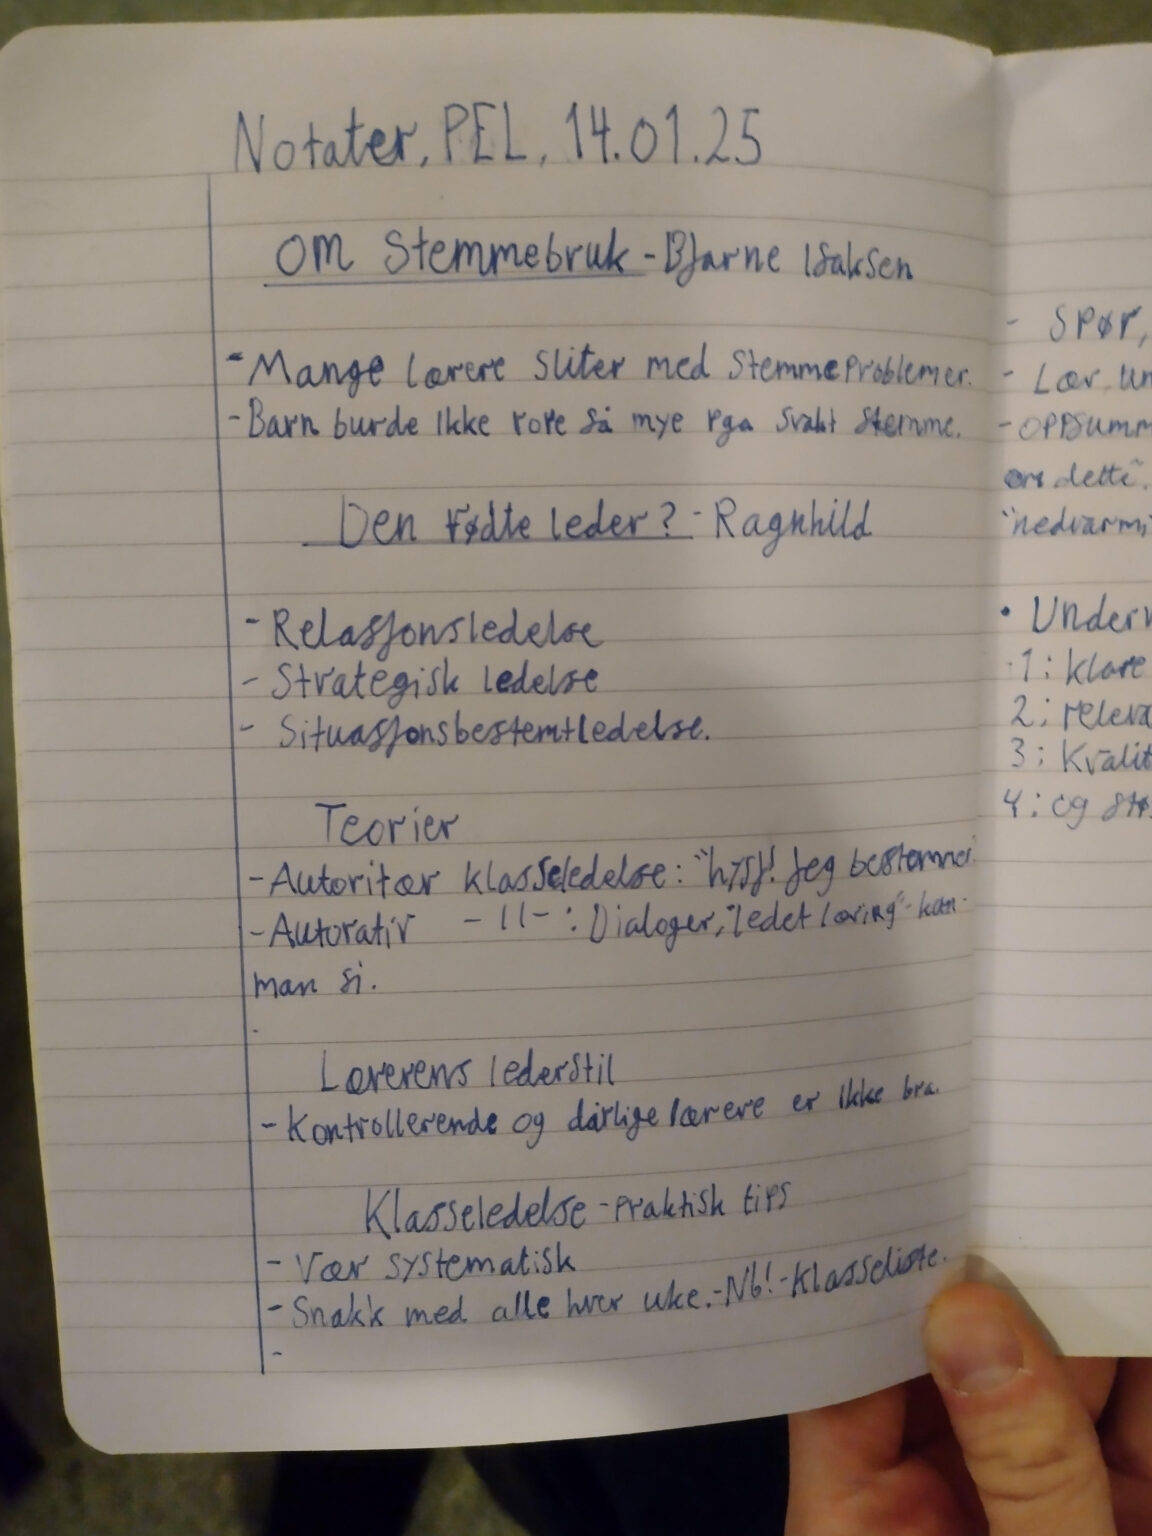 Notater, PEL, 14.01.25
Om Stemmebruk - Bjarne Isaksen
- Mange lærere sliter med stemmeproblemer.
- Barn burde ikke rope så mye pga svakt stemme.
Den fødte leder? - Ragnhild
- Relasjonsledelse
- Strategisk ledelse
- Situasjonsbestemtledelse.
Teorier
- Autoritær klasseledelse: "hysj! Jeg bestemmer
- Autorativ -11- : Dialoger, "ledet læring" - kan
man si.
Lærerens lederstil
- Kontrollerende og dårlige lærere er ikke bra.
Klasseledelse - praktisk tips
- Vær systematisk
- Snakk med alle hver uke. - Nb! - Klasseliste.
-
- Spør,
- Lær
- Oppsumm
om dette".
"nedvarmi
• Underv
1: klare
2: releva
3: Kvalit
4: og stø